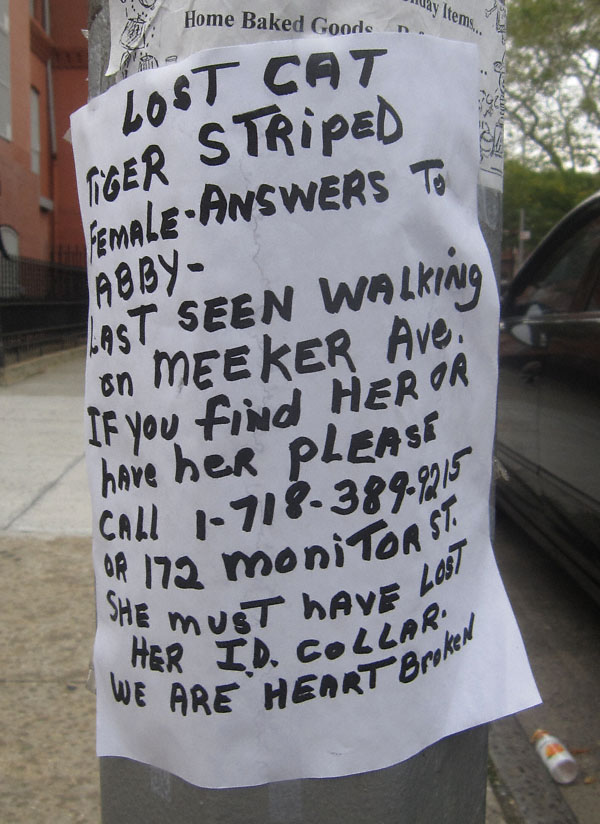 Home Baked Goods
Items...
LOST CAT
TIGER STRIPED
FEMALE-ANSWERS TO
ABBY-
LAST SEEN WALKING
on MEEKER AVE.
IF YOU find HER OR
have her PLEASE
CALL 1-718-389-9215
OR 172 moniTOR ST.
SHE musT hAVE LOST
HER I.D. COLLAR.
WE ARE HEARTBROKEN